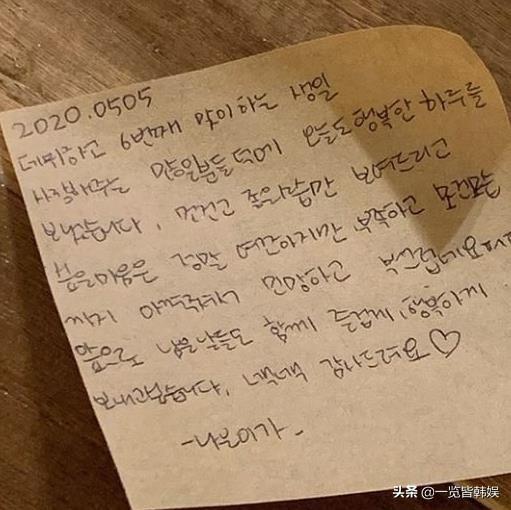 2020.0505
데뷔하고 6번째 맞이하는 생일
사랑해주는 많은분들덕에 오늘도 행복한 하루를
보냈습니다. 멋지고 좋은모습만 보여드리고
싶은마음은 정말 여전하지만 부족하고 모진모습
까지 아껴주셔서 민망하고 부끄럽네요ㅠㅠ
앞으로 남은날들도 함께 즐겁게, 행복하게
보내고싶습니다. 넉넉 감사드려요♡
-나은이가-
头条 @一览皆韩娱